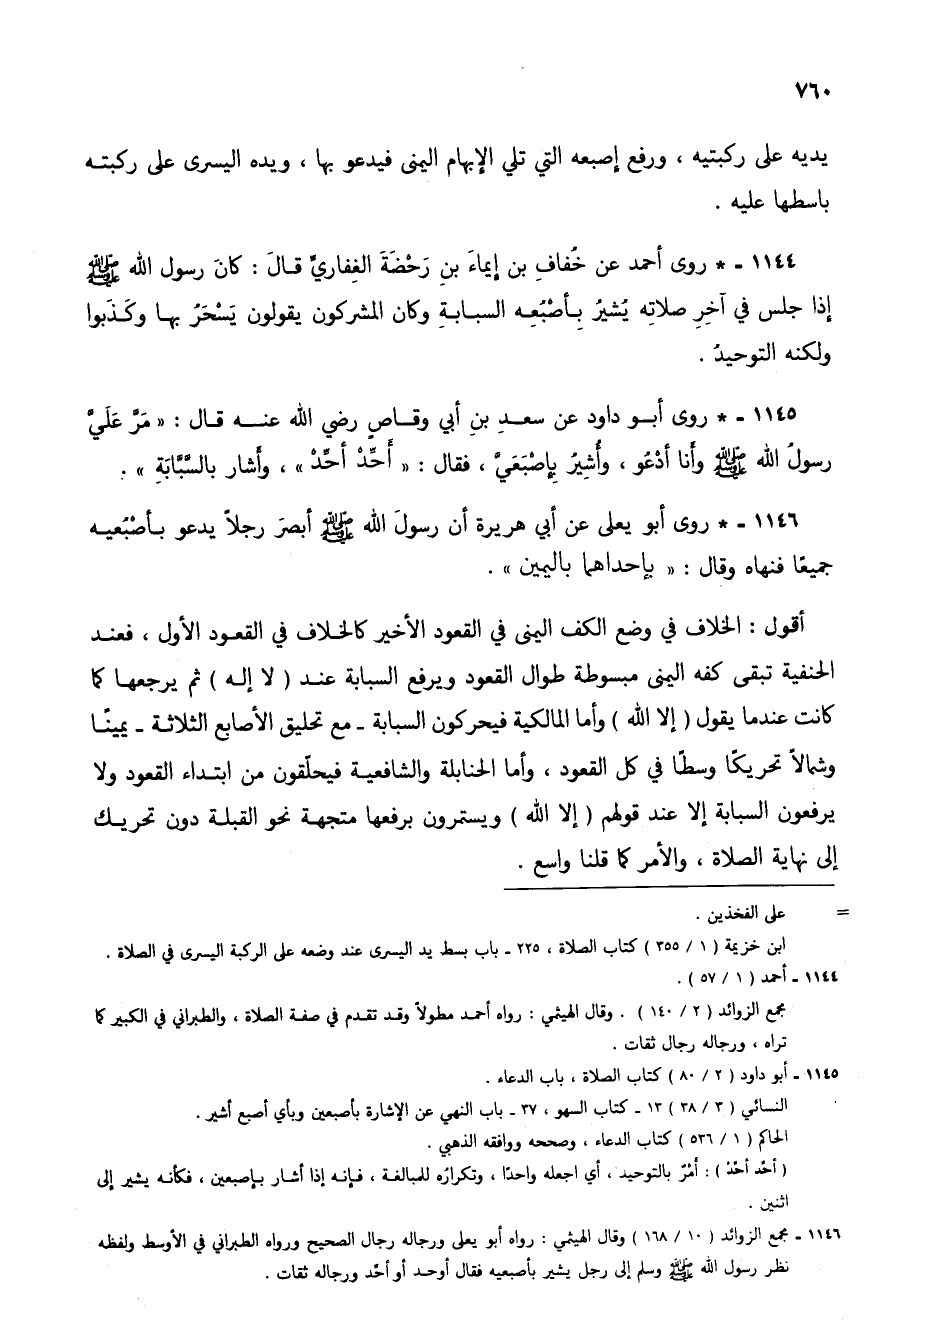 ٧٦٠
يديه على ركبتيه ، ورفع إصبعه التي تلي الإبهام اليمنى فيدعو بها ، ويده اليسرى على ركبتـه
باسطها عليه .
١١٤٤ - * روى أحمد عن خُفافِ بن إيماءَ بنِ رَحْضَةَ الغِفاريِّ قـالَ : كانَ رسول الله ﷺ
إذا جلس في آخِرِ صلاتِه يُشيرُ بـأصْبُعِـه السبـابـةِ وكان المشركون يقولون يَسْحَرُ بهـا وكـذَبوا
ولكنه التوحيدُ .
١١٤٥ - * روى أبـو داود عن سعـدِ بنِ أبي وقـاصٍ رضي الله عنـه قـال : « مَرَّ عَلَيَّ
رسولُ الله ﷺ وأَنا أَدْعُو ، وأُشيرُ بإِصْبَعَيَّ ، فقال : « أَحِّدْ أَحِّدْ » ، وأَشار بالسَّبَّابَةِ » .
١١٤٦ - * روى أبو يعلى عن أبي هريرة أن رسولَ الله ﷺ أبصرَ رجلاً يدعو بـأصْبُعيـه
جميعًا فنهاه وقال : « بإحداهما باليمين » .
أقول : الخلاف في وضع الكف اليمنى في القعود الأخير كالخلاف في القعود الأول ، فعنـد
الحنفية تبقى كفه اليمنى مبسوطة طوال القعود ويرفع السبابة عنـد ( لا إلـه ) ثم يرجعهـا كما
كانت عندما يقول ( إلا الله ) وأما المالكية فيحركون السبابة - مع تحليق الأصابع الثلاثـة - يمينًـا
وشمالاً تحريكًا وسطًا في كل القعود ، وأما الحنابلة والشافعية فيحلّقون من ابتـداء القعود ولا
يرفعون السبابة إلا عند قولهم ( إلا الله ) ويستمرون برفعها متجهة نحو القبلـة دون تحريـك
إلى نهاية الصلاة ، والأمر كما قلنا واسع .
= على الفخذين .
ابن خزيمة ( ١ / ٣٥٥ ) كتاب الصلاة ، ٢٢٥ - باب بسط يد اليسرى عند وضعه على الركبة اليسرى في الصلاة .
١١٤٤ - أحمد ( ١ / ٥٧ ) .
مجمع الزوائد ( ٢ / ١٤٠ ) . وقال الهيثمي : رواه أحمـد مطولاً وقد تقـدم في صفـة الصلاة ، والطبراني في الكبير كما
تراه ، ورجاله رجال ثقات .
١١٤٥ - أبو داود ( ٢ / ٨٠ ) كتاب الصلاة ، باب الدعاء .
النسائي ( ٣ / ٣٨ ) ١٣ - كتاب السهو ، ٣٧ - باب النهي عن الإشارة بأصبعين وبأي أصبع أشير .
الحاكم ( ١ / ٥٣٦ ) كتاب الدعاء ، وصححه ووافقه الذهبي .
( أَحِّد أَحِّد ) : أَمْرٌ بالتوحيد ، أي اجعله واحدًا ، وتكرارُه للمبالغـة ، فـإنـه إذا أشـار بـإصبعين ، فكأنـه يشير إلى
اثنين .
١١٤٦ - مجمع الزوائد ( ١٠ / ١٦٨ ) وقال الهيثمي : رواه أبو يعلى ورجاله رجال الصحيح ورواه الطبراني في الأوسط ولفظه
نظر رسول الله ﷺ وسلم إلى رجل يشير بأصبعيه فقال أوحـد أو أحِّد ورجاله ثقات .